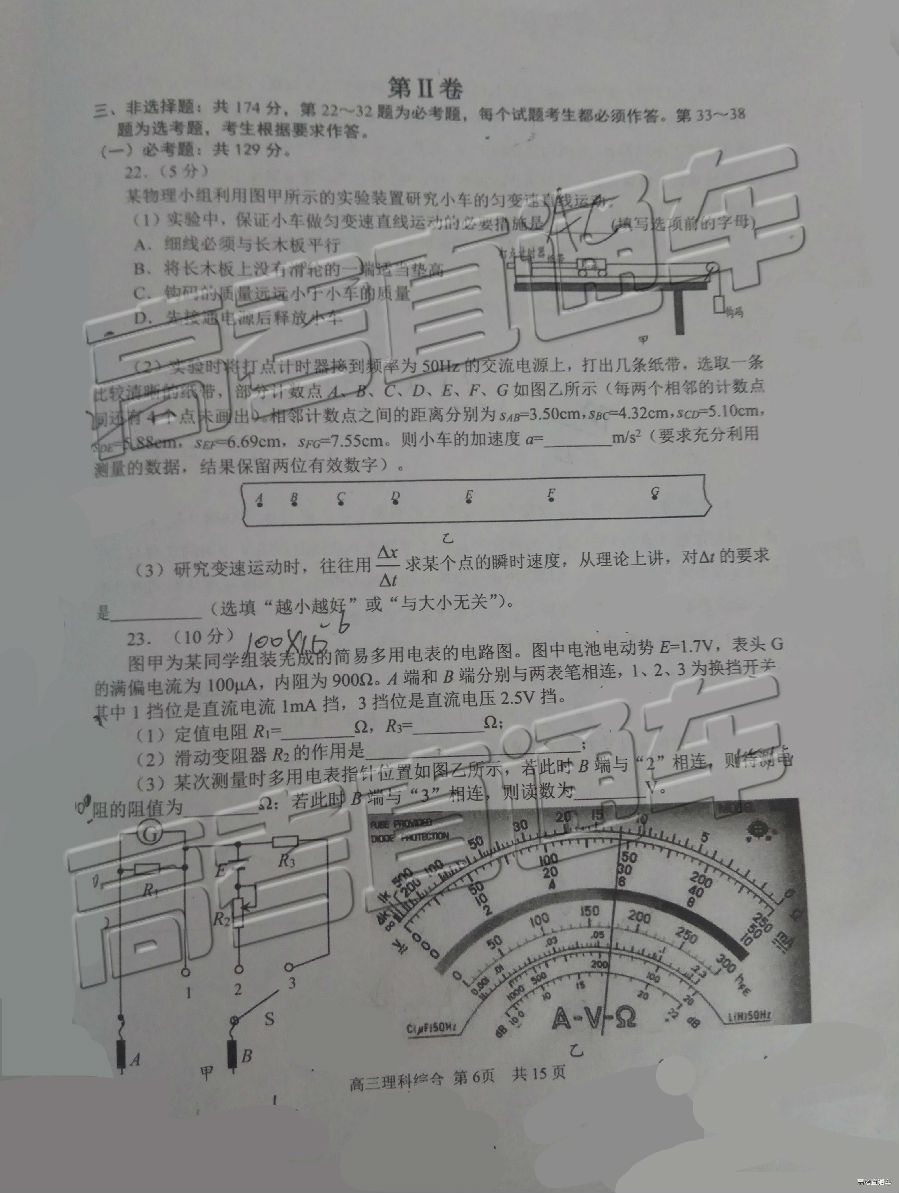 第Ⅱ卷
三、非选择题：共 174 分，第 22～32 题为必考题，每个试题考生都必须作答。第 33～38
题为选考题，考生根据要求作答。
（一）必考题：共 129 分。
22．（5 分）
某物理小组利用图甲所示的实验装置研究小车的匀变速直线运动。
（1）实验中，保证小车做匀变速直线运动的必要措施是 AC （填写选项前的字母）
A．细线必须与长木板平行
B．将长木板上没有滑轮的一端适当垫高
C．钩码的质量远远小于小车的质量
D．先接通电源后释放小车
打点计时器
钩码
甲
（2）实验时将打点计时器接到频率为 50Hz 的交流电源上，打出几条纸带，选取一条
比较清晰的纸带，部分计数点 A、B、C、D、E、F、G 如图乙所示（每两个相邻的计数点
间还有 4 个点未画出）。相邻计数点之间的距离分别为 sAB=3.50cm，sBC=4.32cm，sCD=5.10cm，
sDE=5.88cm，sEF=6.69cm，sFG=7.55cm。则小车的加速度 a=________m/s²（要求充分利用
测量的数据，结果保留两位有效数字）。
A B C D E F G
乙
（3）研究变速运动时，往往用 Δx/Δt 求某个点的瞬时速度，从理论上讲，对Δt 的要求
是__________（选填“越小越好”或“与大小无关”）。
23．（10 分） 100×10⁻⁶
图甲为某同学组装完成的简易多用电表的电路图。图中电池电动势 E=1.7V，表头 G
的满偏电流为 100μA，内阻为 900Ω。A 端和 B 端分别与两表笔相连，1、2、3 为换挡开关，
其中 1 挡位是直流电流 1mA 挡，3 挡位是直流电压 2.5V 挡。
（1）定值电阻 R₁=________Ω，R₃=________Ω；
（2）滑动变阻器 R₂ 的作用是________________________；
（3）某次测量时多用电表指针位置如图乙所示，若此时 B 端与“2”相连，则待测电
阻的阻值为________Ω；若此时 B 端与“3”相连，则读数为________V。
G
R₁
E
R₂
R₃
1 2 3
S
A
B
甲
FUSE PROVIDED
DIODE PROTECTION
MODEL
1k 500 200 100 50 30 20 15 10 5 0
0 50 100 150 200 250
0 10 20 30 40 50
0 2 4 6 8 10
mA
0 50 100 150 200 250 300 hFE
0.001 .01 .03 .05 2.3
1000 500 200 100 20
dB 10 0 10 15 20 22 dB
C(μF)50Hz
A-V-Ω
L(H)50Hz
乙
高三理科综合 第 6页 共 15 页
高考直通车
高考直通车